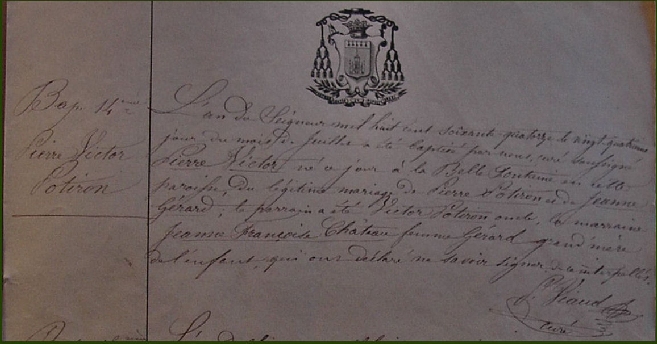 Bap. 14ème
Pierre Victor
Potiron
L'an du Seigneur mil huit cent soixante quatorze le vingt quatrième
jour du mois de Juillet a été baptisé par nous, curé soussigné
Pierre Victor né ce jour à la Belle Fontaine en cette
paroisse, du légitime mariage de Pierre Potiron et de Jeanne
Gérard; le parrain a été Victor Potiron oncle, la marraine
Jeanne Françoise Chateau femme Gérard grand mère
de l'enfant, qui ont déclaré ne savoir signer, de ce interpellés.
Viaud
curé